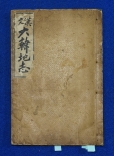 大韓地志